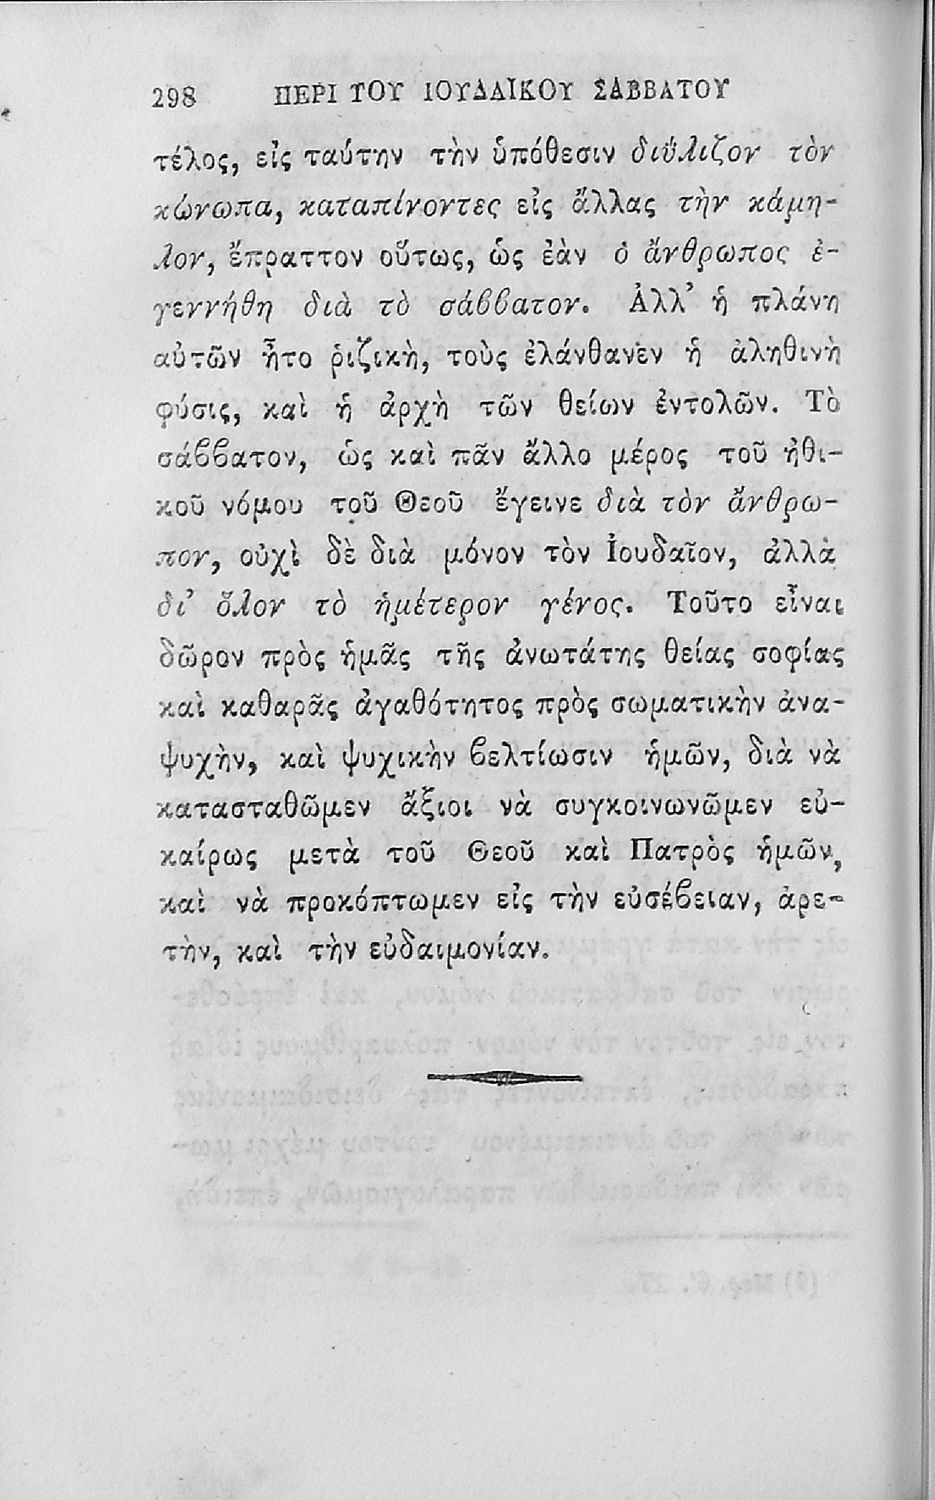 298 ΠΕΡΙ ΤΟΥ ΙΟΥΔΑΪΚΟΥ ΣΑΒΒΑΤΟΥ
τέλος, εἰς ταύτην τὴν ὑπόθεσιν διΰλιζον τὸν
κώνωπα, καταπίνοντες εἰς ἄλλας τὴν κάμη-
λον, ἔπραττον οὕτως, ὡς ἐὰν ὁ ἄνθρωπος ἐ-
γεννήθη διὰ τὸ σάϐϐατον. Ἀλλ’ ἡ πλάνη
αὐτῶν ἦτο ῥιζικὴ, τοὺς ἐλάνθανεν ἡ ἀληθινὴ
φύσις, καὶ ἡ ἀρχὴ τῶν θείων ἐντολῶν. Τὸ
σάϐϐατον, ὡς καὶ πᾶν ἄλλο μέρος τοῦ ἠθι-
κοῦ νόμου τοῦ Θεοῦ ἔγεινε διὰ τὸν ἄνθρω-
πον, οὐχὶ δὲ διὰ μόνον τὸν Ἰουδαῖον, ἀλλὰ
δι’ ὅλον τὸ ἡμέτερον γένος. Τοῦτο εἶναι
δῶρον πρὸς ἡμᾶς τῆς ἀνωτάτης θείας σοφίας
καὶ καθαρᾶς ἀγαθότητος πρὸς σωματικὴν ἀνα-
ψυχὴν, καὶ ψυχικὴν ϐελτίωσιν ἡμῶν, διὰ νὰ
κατασταθῶμεν ἄξιοι νὰ συγκοινωνῶμεν εὐ-
καίρως μετὰ τοῦ Θεοῦ καὶ Πατρὸς ἡμῶν,
καὶ νὰ προκόπτωμεν εἰς τὴν εὐσέϐειαν, ἀρε-
τὴν, καὶ τὴν εὐδαιμονίαν.